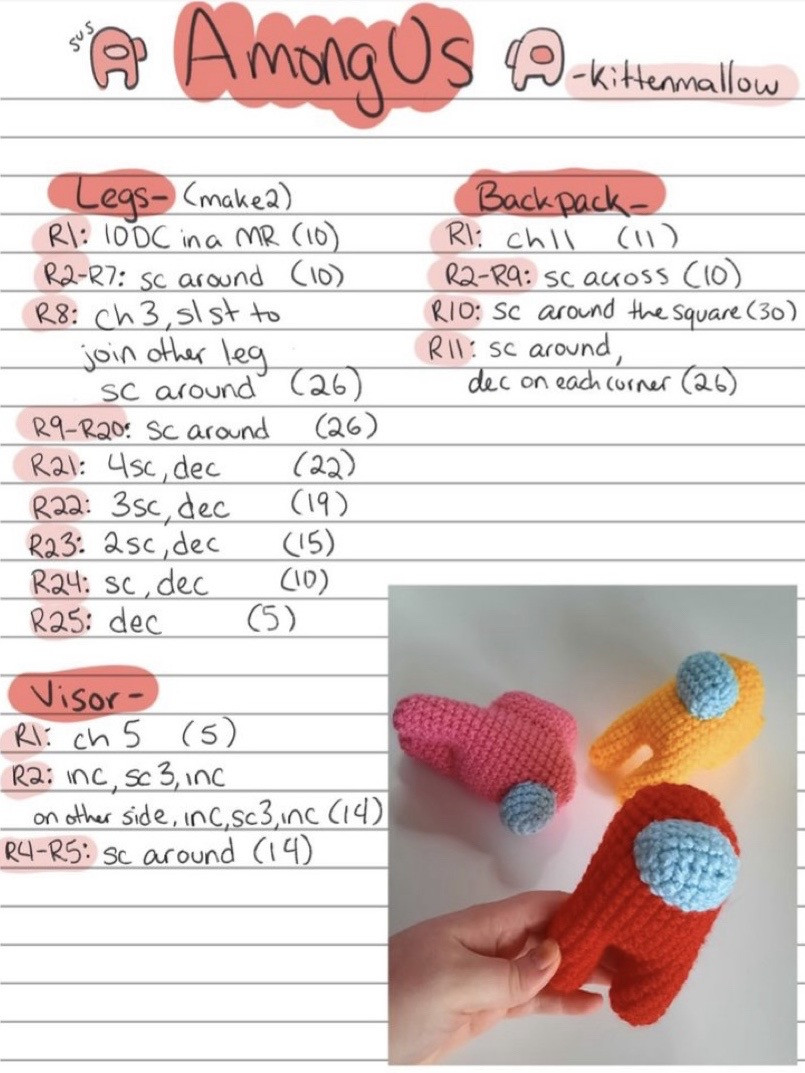 sus
Among Us
-kittenmallow
Legs- (make2)
R1: 10DC in a MR (10)
R2-R7: sc around (10)
R8: ch 3, sl st to
join other leg
sc around (26)
R9-R20: sc around (26)
R21: 4sc, dec (22)
R22: 3sc, dec (19)
R23: 2sc, dec (15)
R24: sc, dec (10)
R25: dec (5)
Visor-
R1: ch 5 (5)
R2: inc, sc 3, inc
on other side, inc, sc3, inc (14)
R4-R5: sc around (14)
Backpack-
R1: ch 11 (11)
R2-R9: sc across (10)
R10: sc around the square (30)
R11: sc around,
dec on each corner (26)